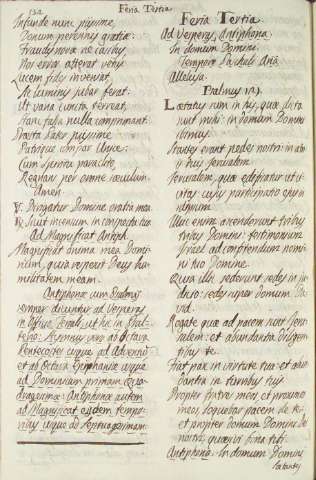 132
Feria Tertia
Infunde nunc piissime,
Donum perennis gratiæ:
Fraudis novæ ne casibus,
Nos error atterat vetus.
Lucem fides inveniat,
Sic luminis jubar ferat:
Ut vana cuncta terreat,
Hanc falsa nulla comprimant.
Præsta Pater piissime,
Patrique compar Unice:
Cum Spiritu paraclito,
Regnans per omne sæculum.
Amen.
℣. Dirigatur Domine oratio mea.
℟. Sicut incensum in conspectu tuo.
Ad Magnificat Antiph.
Magnificet anima mea Domi-
num, quia respexit Deus hu-
militatem meam.
Antiphonæ cum Psalmis
semper dicuntur ad Vesperas
in Officio Feriali, ut hic in Psal-
terio: Hymnus vero ab Octava
Pentecostes usque ad Adventum
et ab Octava Epiphaniæ usque
ad Dominicam primam Qua-
dragesimæ: Antiphonæ autem
ad Magnificat eisdem tempo-
ribus usque ad Septuagesimam.
Feria Tertia
Ad Vesperas, Antiphona.
In domum Domini.
Tempore Paschali Ana.
Alleluja.
Psalmus 121.
Lætatus sum in his, quæ dicta
sunt mihi: in domum Domini
ibimus.
Stantes erant pedes nostri: in atri-
is tuis Jerusalem.
Jerusalem, quæ ædificatur ut ci-
vitas: cujus participatio ejus in
idipsum.
Illuc enim ascenderunt tribus
tribus Domini: testimonium
Israel ad confitendum nomi-
ni tuo Domine.
Quia illic sederunt sedes in ju-
dicio: sedes super domum Da-
vid.
Rogate quæ ad pacem sunt Jeru-
salem: et abundantia diligen-
tibus te.
Fiat pax in virtute tua: et abun-
dantia in turribus tuis.
Propter fratres meos, et proximos
meos, loquebar pacem de te.
et propter domum Domini Dei
nostri, quæsivi bona tibi.
Antiphona. In domum Domini